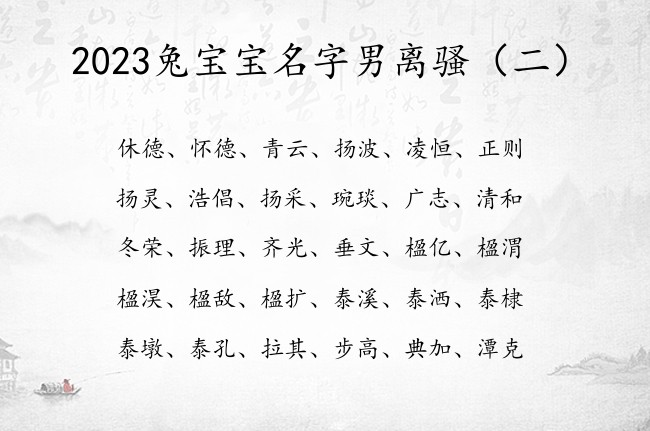 2023兔宝宝名字男离骚（二）
休德、怀德、青云、扬波、凌恒、正则
扬灵、浩倡、扬采、琬琰、广志、清和
冬荣、振理、齐光、垂文、楹亿、楹渭
楹淏、楹敌、楹扩、泰溪、泰洒、泰棣
泰墩、泰孔、拉其、步高、典加、潭克